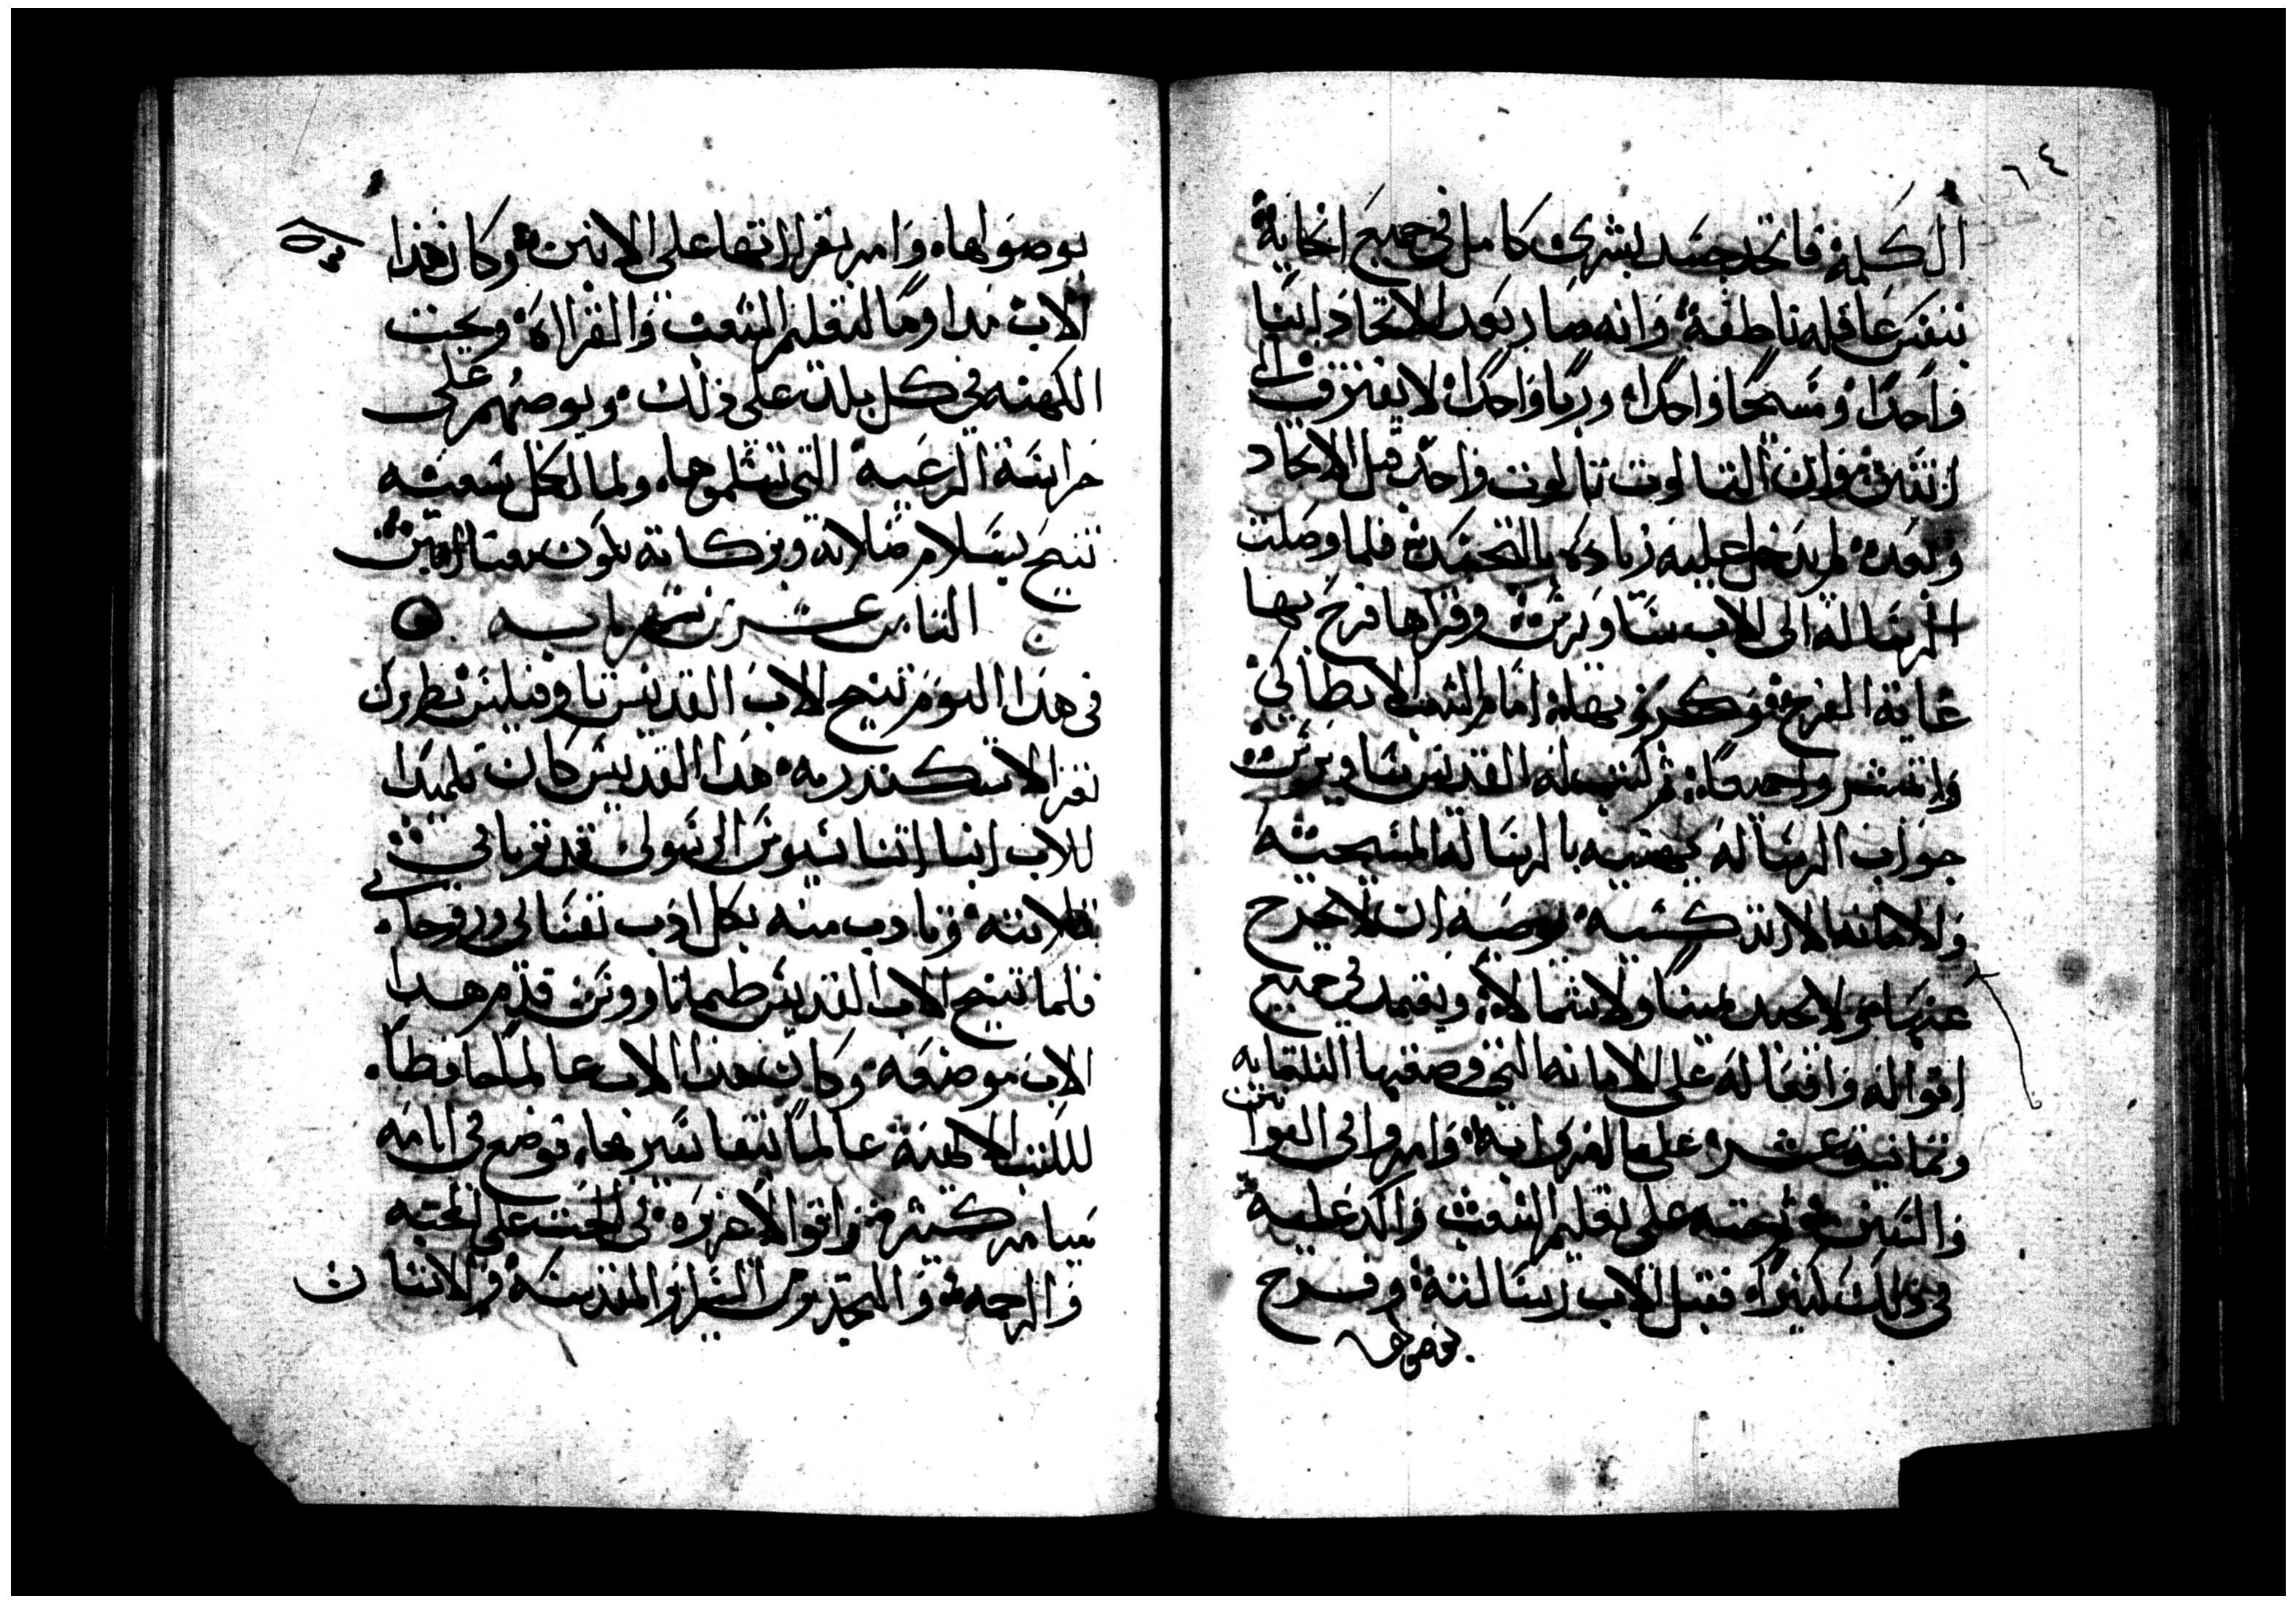 ٦٤
الكلمة فاتحد بجسد بشرى كامل فى جميع انحايه
بنفس عاقله ناطقة وانه صار بعد الاتحاد ابنا
واحدا ومسيحا واحدا وربا واحدا لا يفترق الى
اثنين وان الثالوت تالوت واحد قبل الاتحاد
وبعده لم يدخل عليه زياده بالتجسد فلما وصلت
الرساله الى الاب ساويرس وقراها فرح بها
غاية الفرح وكرز بها امام الشعب الانطاكى
وانتشروا جميعا ثم كتب له القديس ساويرس
جواب الرساله يهنيه بالرساله المسيحيه
والامانه الارتدكسيه يوصيه ان لا يخرج
عنها ولا يحيد يمينا ولا شمالا ويعتمد فى جميع
اقواله وافعاله على الامانه التى وضعتها التلتمايه
وتمانية عشر على ما امروا به وامروا فى القوانين
والسنن وحته على تعليم الشعب واكد عليه
فى ذلك كتيرا فقبل الاب رسالته وفرح
بوصولها
بوصولها وامر بقراتها على الانبن وكان هذا
الاب مداوما لتعليم الشعب والقراة ويحت
الكهنه فى كل بلد على ذلك ويوصيهم على
حراسة الرعيه التى تسلموها ولما اكمل سعيه
تنيح بسلام صلاته وبركاته تكون معنا امين
التامن عشر من شهر بابه
فى هذا اليوم تنيح الاب القديس تاوفيلس بطريرك
تغر الاسكندريه هذا القديس كان تلميدا
للاب انبا اتناسيوس الرسولى قد تربا فى
قلايته وتادب منه بكل ادب نفسانى وروحانى
فلما تنيح الاب القديس طيماتاوس قدم هدا
الاب موضعه وكان هدا الاب عالما حافظا
للكتب الالهية عالما بتفاسيرها فوضع فى ايامه
ميامر كتيره واقوالا غزيره فى الحت على المحبه
والرحمه والتحدير من السراير المقدسه والانسان